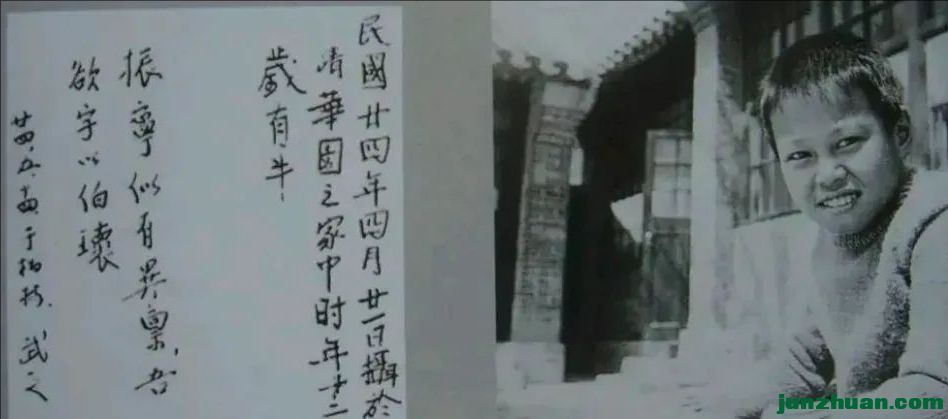 民國廿四年四月廿一日攝於
清華園之家中时年十二
歲有半
振寧似有異禀，吾
欲字以伯瓌
廿四、五、十四于柏林. 武之
junzhuan.com